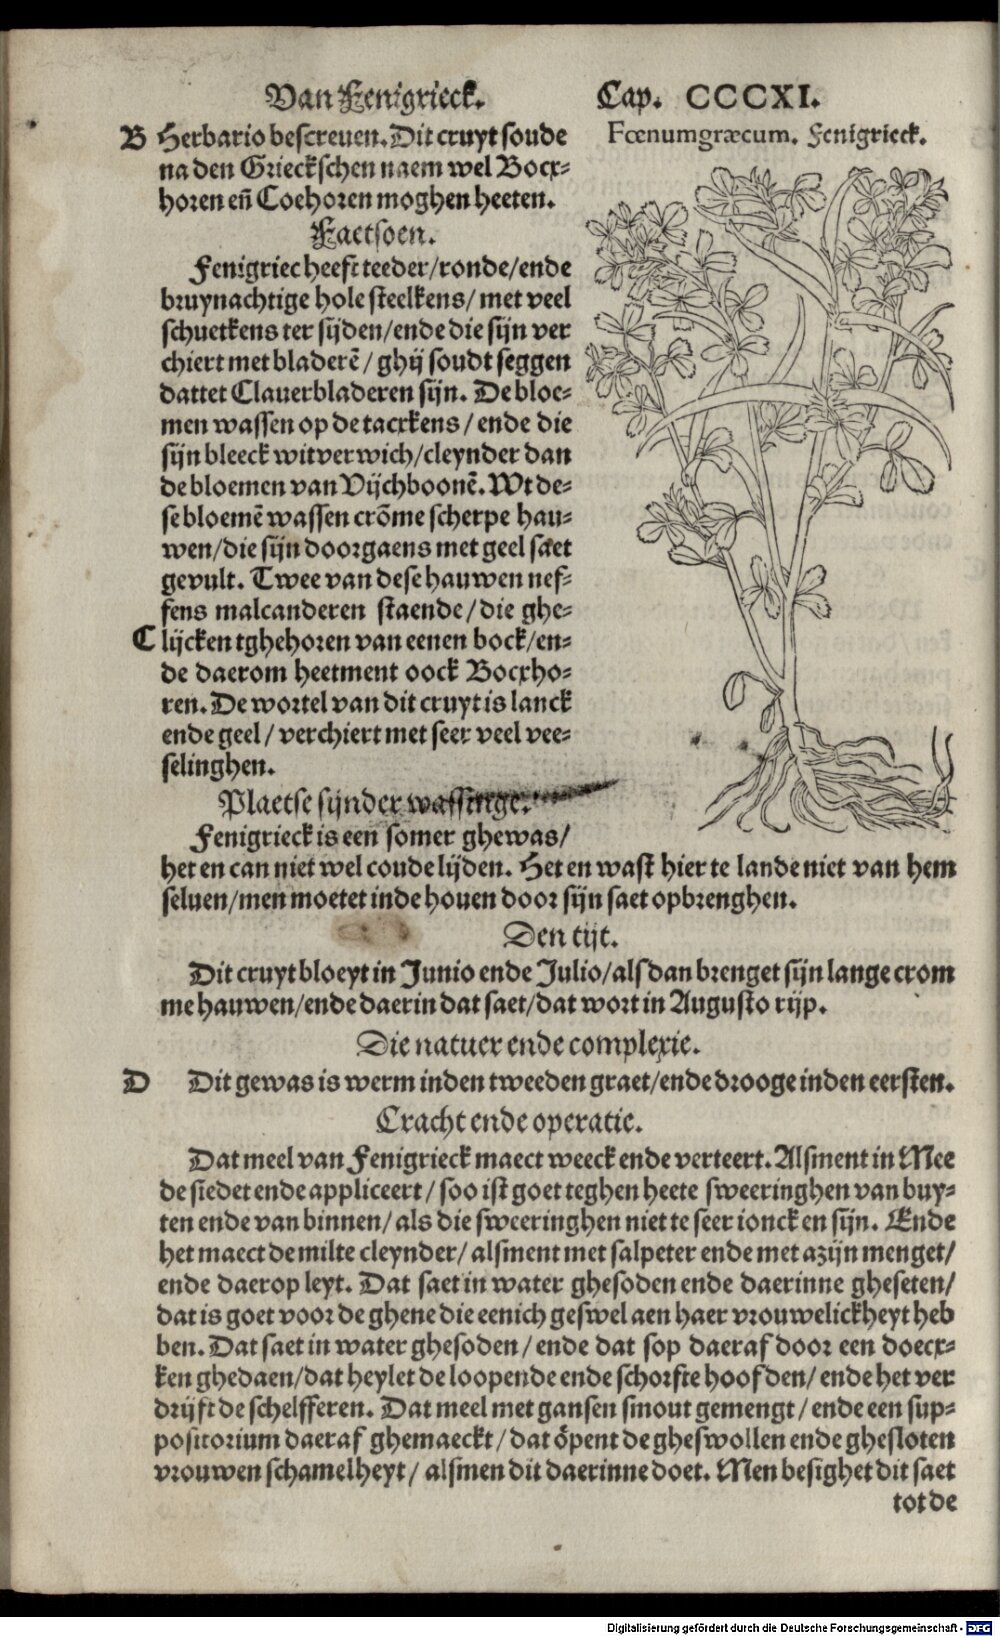 Van Fenigrieck. Cap. CCCXI.
B Herbario bescreuen. Dit cruyt soude
na den Grieckschen naem wel Bocx-
horen en̄ Coehoren moghen heeten.
Faetsoen.
Fenigriec heeft teeder/ronde/ende
bruynachtige hole steelkens/met veel
schuetkens ter sijden/ende die sijn ver
chiert met bladerē/ghij soudt seggen
dattet Clauerbladeren sijn. De bloe-
men wassen op de tacxkens/ende die
sijn bleeck witverwich/cleynder dan
de bloemen van Vijchboonē. Wt de-
se bloemē wassen crōme scherpe hau-
wen/die sijn doorgaens met geel saet
gevult. Twee van dese hauwen nef-
fens malcanderen staende/die ghe-
C lijcken tghehoren van eenen bock/en-
de daerom heetment oock Bocxho-
ren. De wortel van dit cruyt is lanck
ende geel/verchiert met seer veel vee-
selinghen.
Plaetse sijnder wassinge.
Fenigrieck is een somer ghewas/
Fœnumgræcum. Fenigrieck.
het en can niet wel coude lijden. Het en wast hier te lande niet van hem
seluen/men moetet inde houen door sijn saet opbrenghen.
Den tijt.
Dit cruyt bloeyt in Junio ende Julio/als dan brenget sijn lange crom
me hauwen/ende daerin dat saet/dat wort in Augusto rijp.
Die natuer ende complexie.
D Dit gewas is werm inden tweeden graet/ende drooge inden eersten.
Cracht ende operatie.
Dat meel van Fenigrieck maect weeck ende verteert. Alsment in Mee
de siedet ende appliceert/soo ist goet teghen heete sweeringhen van buy-
ten ende van binnen/als die sweeringhen niet te seer ionck en sijn. Ende
het maect de milte cleynder/alsment met salpeter ende met azijn menget/
ende daerop leyt. Dat saet in water ghesoden ende daerinne gheseten/
dat is goet voor de ghene die eenich geswel aen haer vrouwelickheyt heb
ben. Dat saet in water ghesoden/ende dat sop daeraf door een doecx-
ken ghedaen/dat heylet de loopende ende schorfte hoofden/ende het ver
drijft de schelfferen. Dat meel met gansen smout gemengt/ende een sup-
positorium daeraf ghemaeckt/dat ōpent de gheswollen ende ghesloten
vrouwen schamelheyt/alsmen dit daerinne doet. Men besighet dit saet
tot de
Digitalisierung gefördert durch die Deutsche Forschungsgemeinschaft - DFG